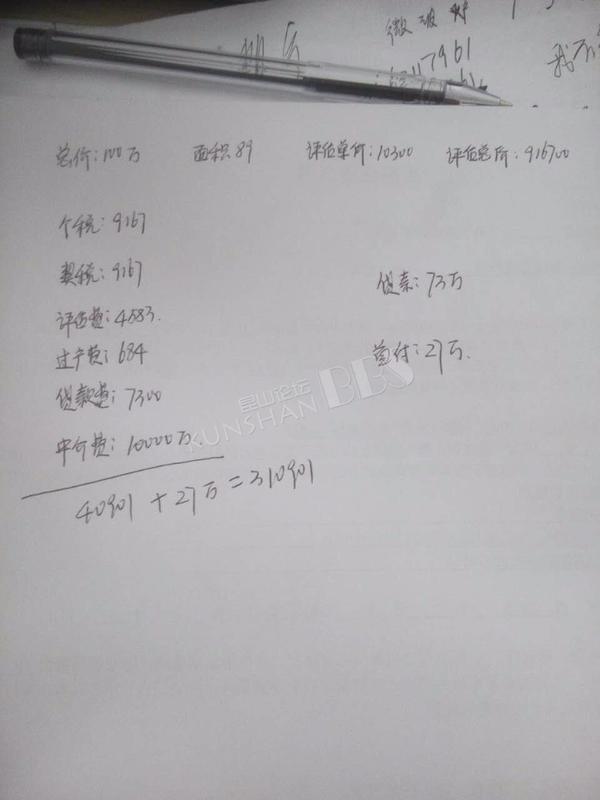 微波炉
总价:100万 面积89 评估单价:10300 评估总价:916700
个税:9167
契税:9167
贷款:73万
评估费:4583.
首付:27万.
过户费:684
贷款费:7300
昆山论坛
KUNSHAN BBS
中介费:10000万.
40901+27万=310901